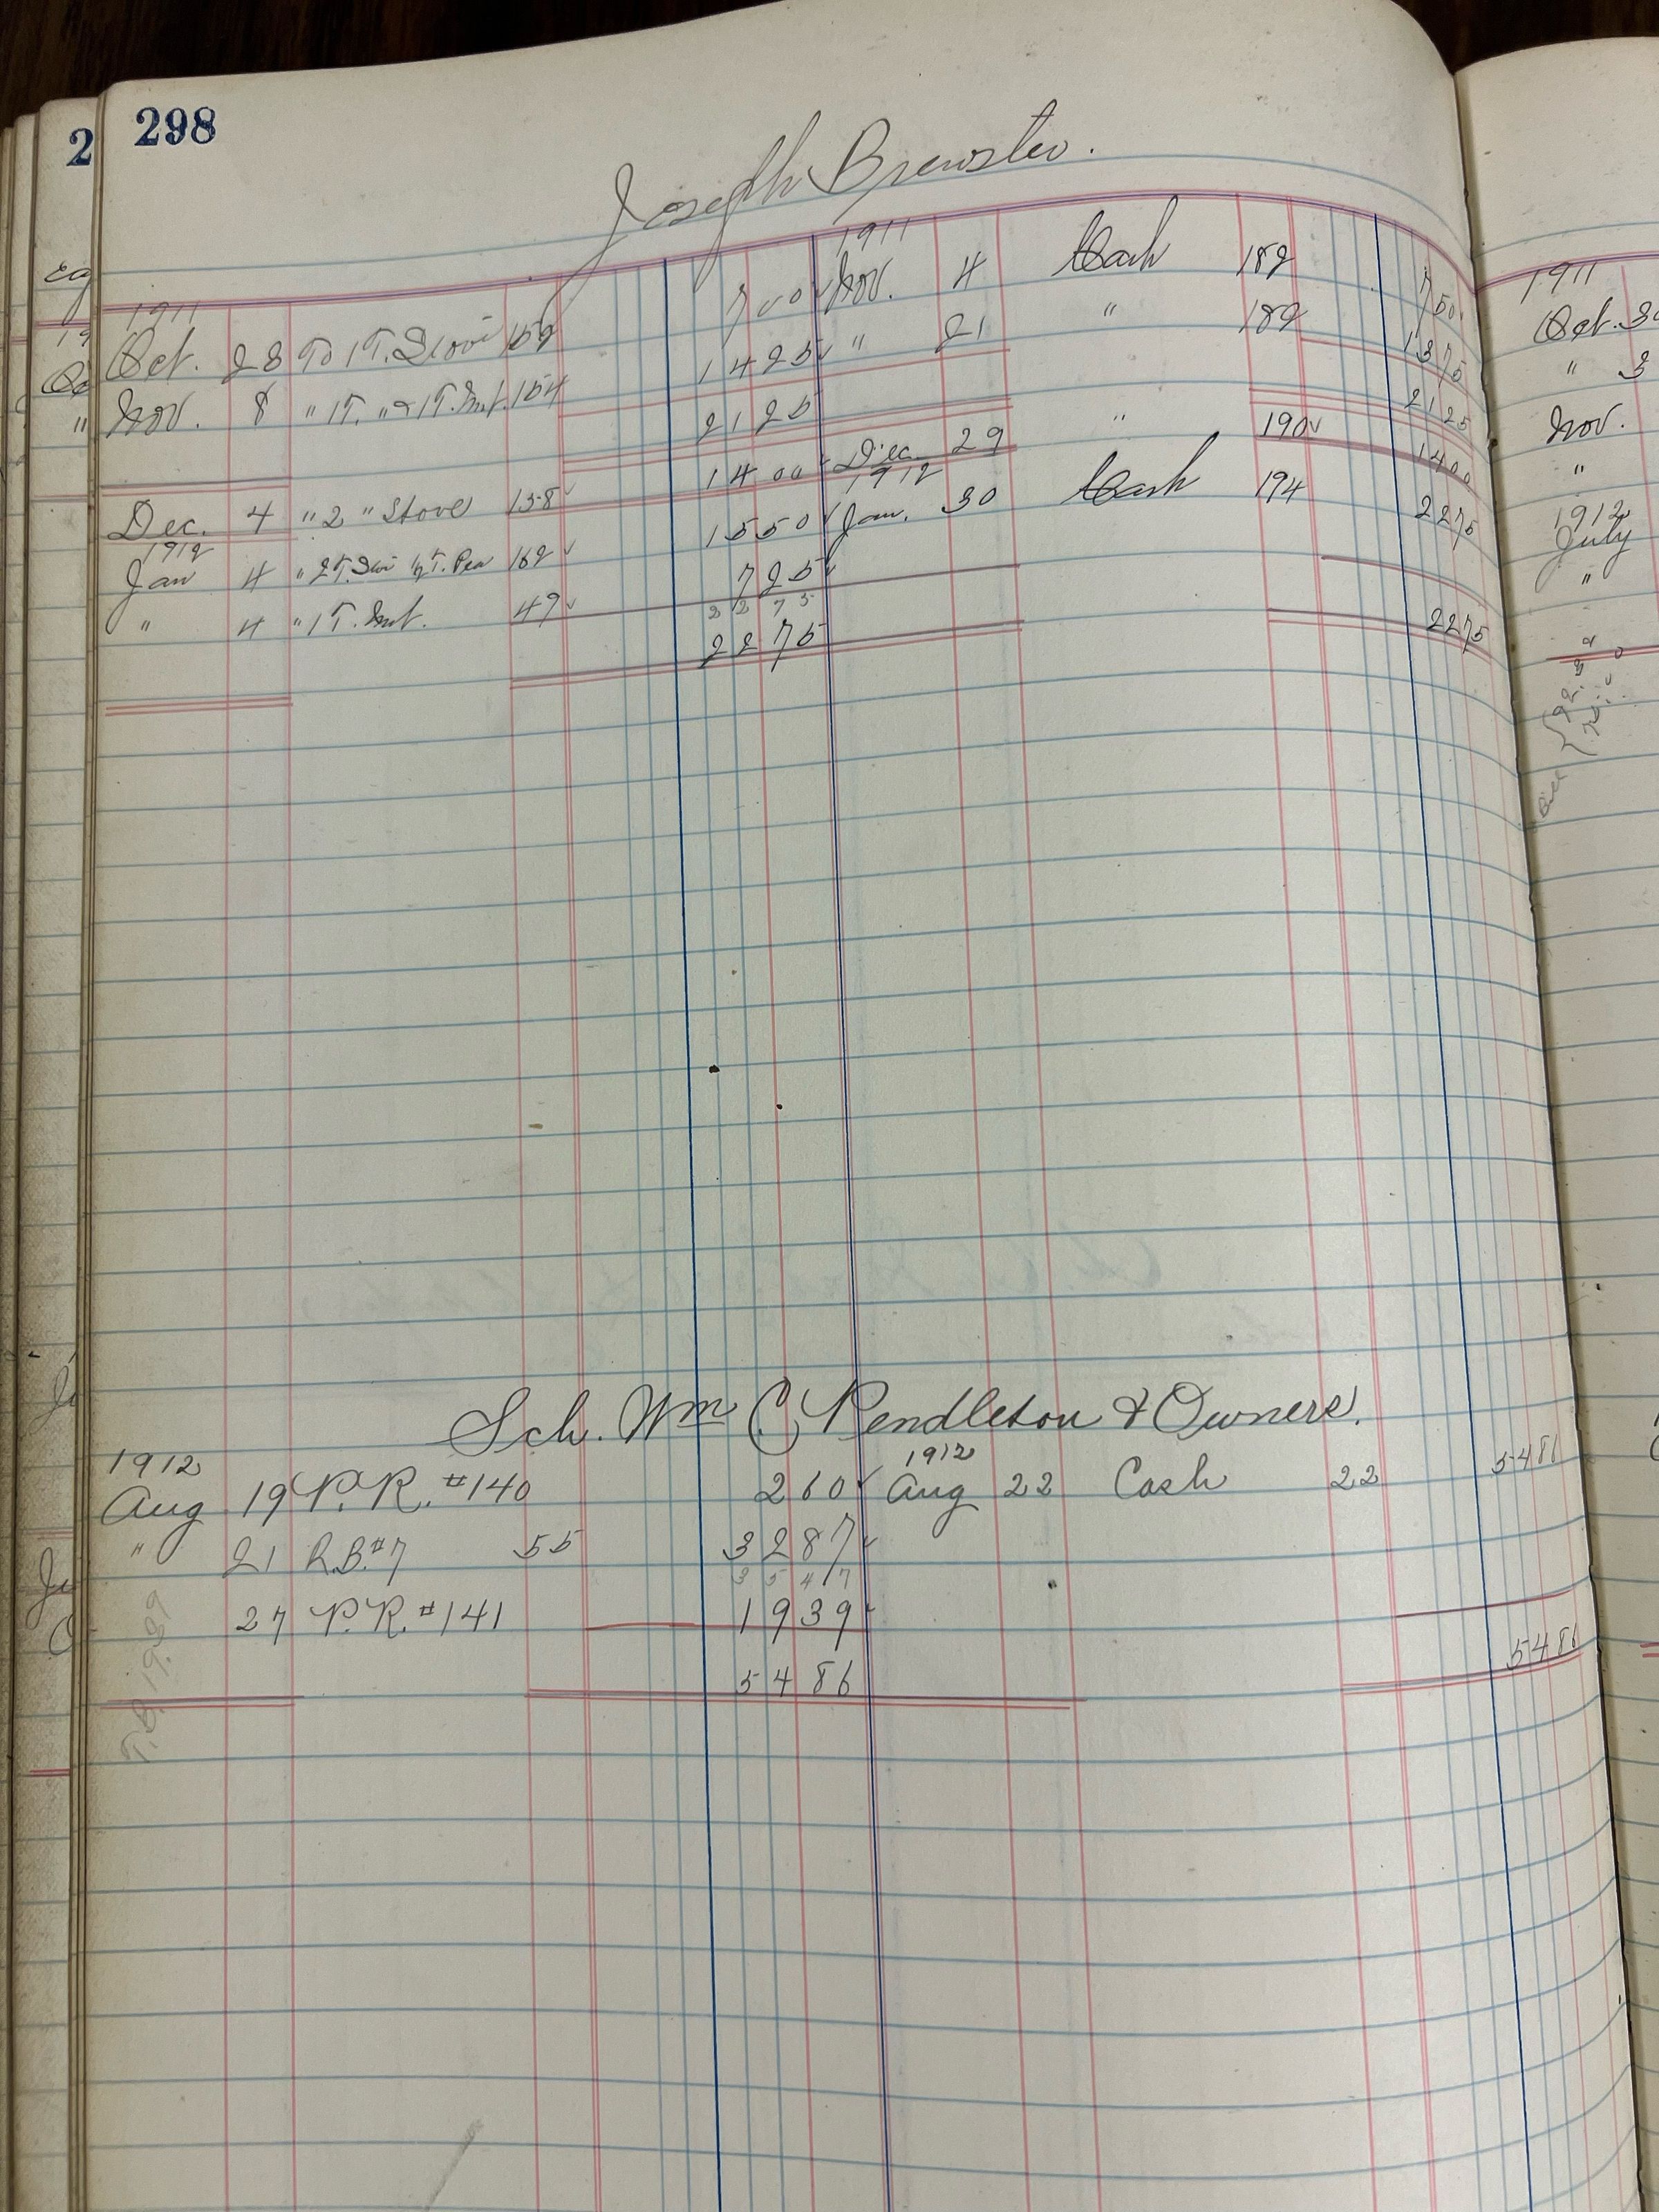 298
2
Joseph Brewster.
1911
1911
Oct. 28 To 1 T. Stove 152 7 00 Nov. 4 Cash 182 7 50
Nov. 8 " 1 T. " & 1 T. Nut. 154 14 25 " 21 " 182 13 75
21 25 21 25
Dec. 4 " 2 " Stove 158 14 00 Dec. 29 " 190 14 00
1912
1912
Jan 4 " 2 T. Stove ½ T. Pea 162 15 50 Jan. 30 Cash 194 22 75
" 4 " 1 T. Nut. 47 7 25
22 75
22 75 22 75
Sch. Wm C. Pendleton & Owners.
1912
1912
Aug 19 P.R. #140 2 60 Aug 22 Cash 22 54 86
" 21 R.B. #7 55 32 87
35 47
27 P.R. #141 19 39
54 86 54 86
T.B. 19.39
1911
Oct. 30
" 3
Nov.
"
1912
July
"